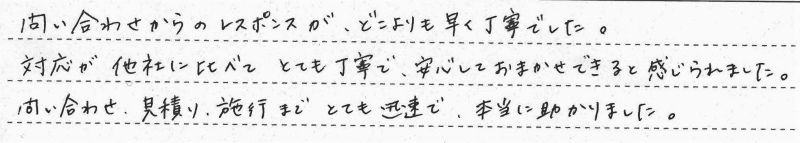 問い合わせからのレスポンスが、どこよりも早く丁寧でした。
対応が他社に比べてとても丁寧で、安心しておまかせできると感じられました。
問い合わせ、見積り、施行までとても迅速で、本当に助かりました。